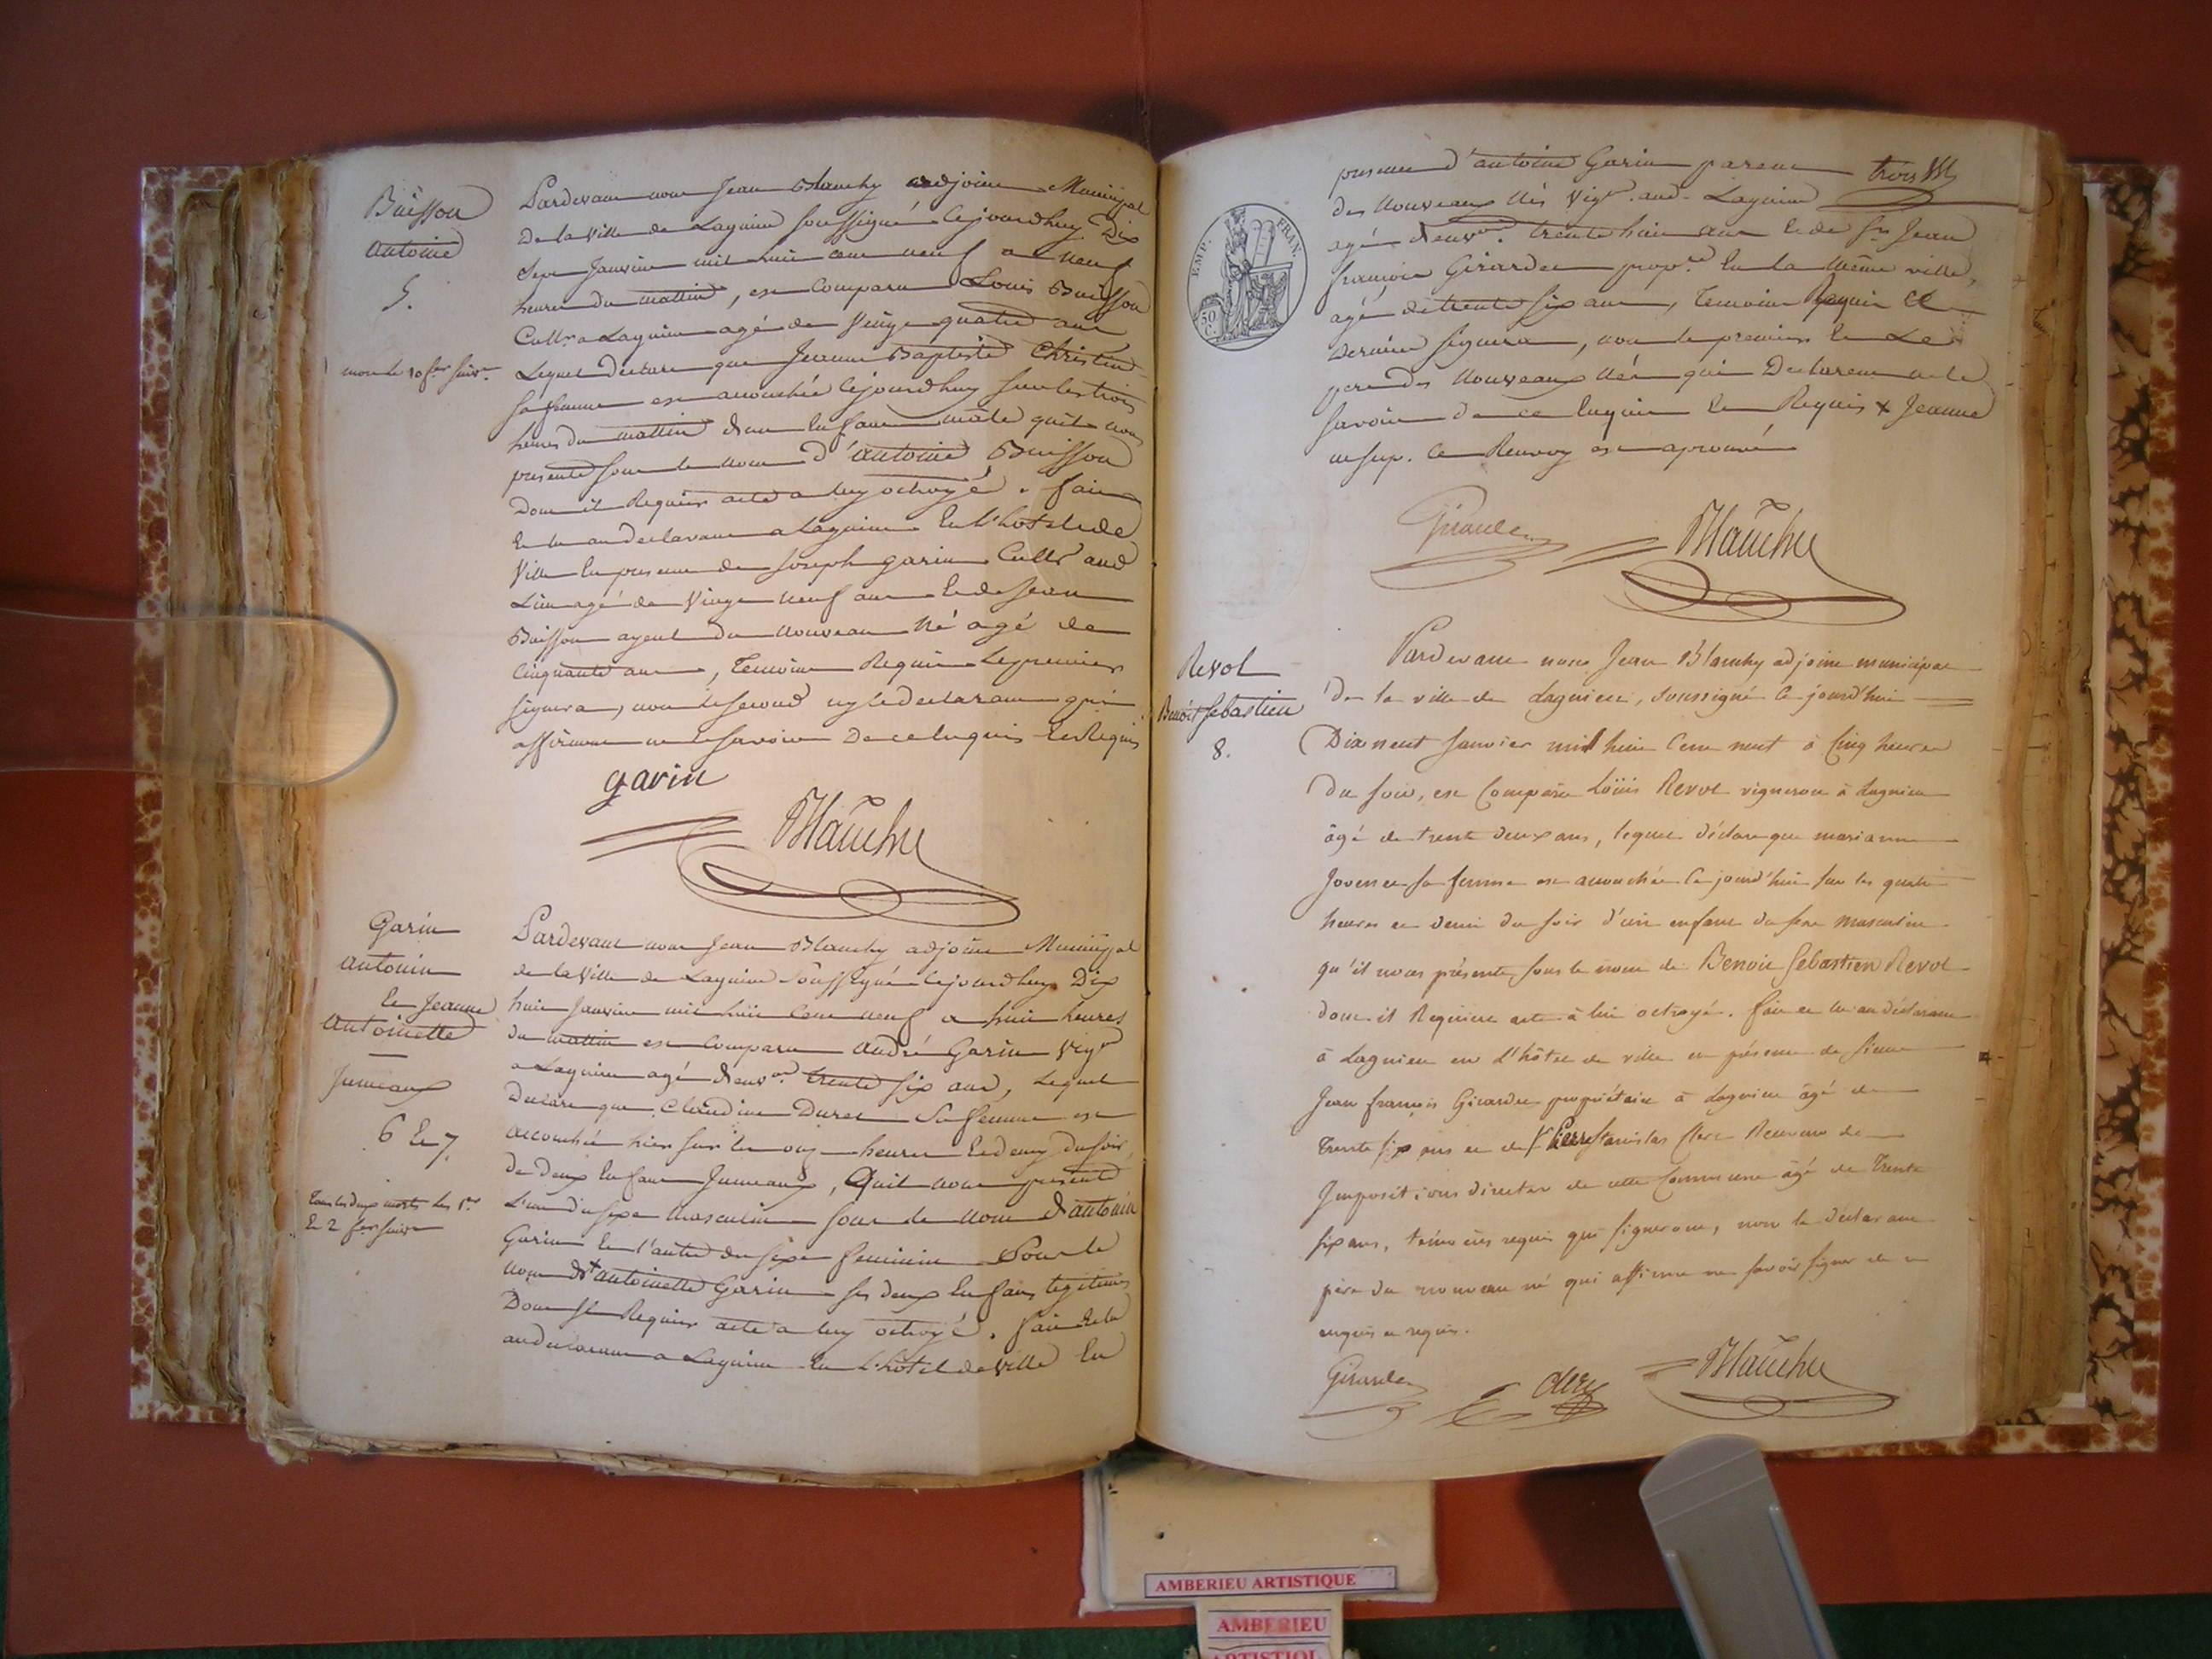 Buisson
Antoine
5.
mort le 10 fer suivt
Pardevant nous Jean Blanchy adjoint Municipal
De la ville de Lagnieu soussigné Cejourdhuy Dix
Sept Janvier mil huit cent neuf a neuf
heures du mattin, est Comparu Louis Buisson
Cultr a Lagnieu agé de Vingt quatre ans
Lequel Declare que Jeanne Baptiste Christin
sa femme est accouchée Cejourdhuy sur les trois
heures du mattin d'un Enfant mâle qu'il nous
presente sous le nom d'antoine Buisson
Dont il Requier acte a luy octroyé. fait
Et lu au declarant a Lagnieu En l'hotel de
Ville En presence de Joseph garin Cultr aud
Lieu agé de Vingt neuf ans Et de Jean
Buisson ayeul du nouveau Né agé de
Cinquante ans, Temoins Requis Le premier
signera, non le second ny le declarant qui
affirment ne le savoir De ce Enquis et Requis
garin
Blanchy
Garin
Antonin
Et Jeanne
Antoinette
Jumeaux
6 Et 7.
Tous les deux morts Les 1er
Et 2 fer suivt
Pardevant nous Jean Blanchy adjoint Municipal
de la Ville de Lagnieu Soussigné Cejourdhuy Dix
huit Janvier mil huit Cent neuf a huit heures
du mattin est Comparu André Garin Vigr
a Lagnieu agé d'envon trente six ans, Lequel
Declare que Claudine Duret Sa femme est
accouchée hier sur les onze heures Et demy du soir
de deux Enfans Jumeaux, Qu'il nous presente
L'un du sexe masculin sous le nom d'antonin
Garin Et l'autre du sexe feminin Sous le
nom d'+ antoinette Garin ses deux Enfans legitimes
Dont Il Requier acte a luy octroyé. fait Et lu
au declarant a Lagnieu En L'hôtel de Ville En
EMP. FRAN.
50
C.
presence d'antoine Garin parent
des Nouveaux Nés Vigr aud. Lagnieu
agé d'envon trente huit ans Et de Sr Jean
françois Girardet proprre En la même ville,
agé de trente six ans, Temoins Requis Ce
Dernier signera, non le premier Et Le
pere des Nouveaux Nés qui Declarent ne le
savoir de ce Enquis Et Requis + Jeanne
Ce Renvoy est aprouvé
Girardet
Blanchy
Revol
Benoit Sebastien
8.
Pardevant nous Jean Blanchy adjoint municipal
De la ville de Lagnieu, soussigné Ce jourd'hui
Dix neuf Janvier mil huit Cent neuf à Cinq heures
Du soir, est Comparu Louis Revol vigneron à Lagnieu
âgé de trente deux ans, lequel déclare que marianne
Jovenet sa femme est accouchée Ce jourd'hui sur les quatre
heures et demi du soir d'un enfant du sexe masculin
qu'il nous présente sous le nom de Benoit Sebastien Revol
dont il Requiert acte à lui octroyé. fait et lu au déclarant
à Lagnieu en L'hôtel de ville en présence de Sieur
Jean françois Girardet propriétaire à Lagnieu âgé de
Trente six ans et de Sr Pierre Stanislas Clerc Receveur de
Impositions directes de cette Commune âgé de Trente
six ans, témoins requis qui signeront, non le déclarant
père du nouveau né qui affirme ne savoir signer de ce
enquis et requis.
Girardet
Clerc
Blanchy
AMBERIEU ARTISTIQUE
AMBERIEU